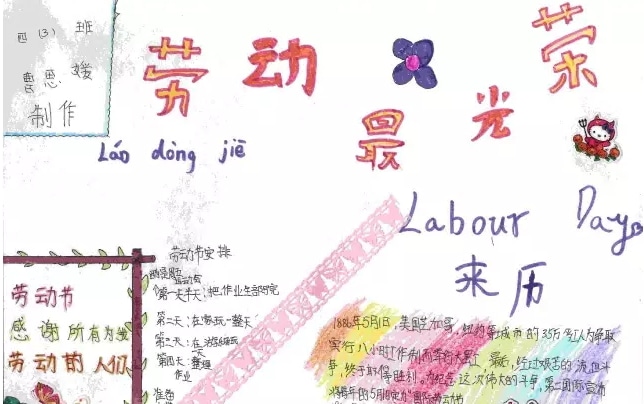 四(3)班
曹思媛
制作
劳动最光荣
Láo dòng jiē
Labour Day
来历
劳动节
感谢所有为
劳动的人们
劳动节安排
第一天
把作业全部写完
第二天:在家玩一整天
第三天:在
第四天:整理
作业
1886年5月1日,美国芝加哥,纽约等城市的35万名工人为争取
实行八小时工作制而举行大罢工,最后,经过艰苦的流血斗
争,终于取得胜利。为纪念这次伟大的斗争,第二国际宣布
将每年的5月1日定为国际劳动节